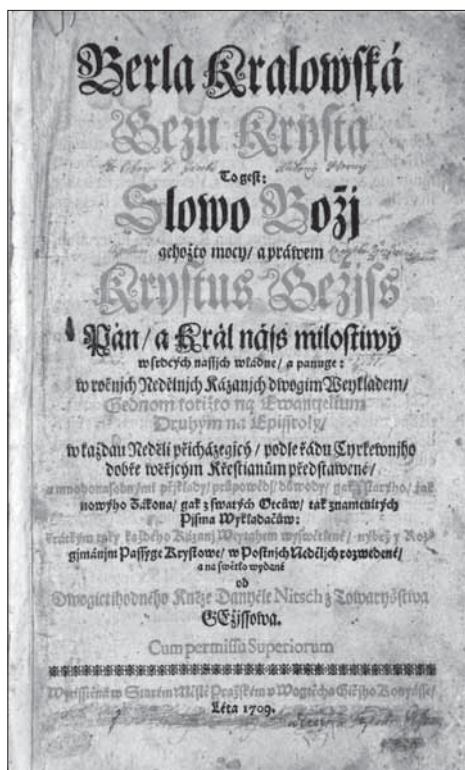 Berla Kralowſká
Gezu Kryſta
To geſt:
Slowo Božj
gehožto mocy/ a práwem
Kryſtus Gežiſs
Pán/ a Král náſs miloſtiwý
w ſrdcých naſſjch wládne/ a panuge:
w ročnjch Nedělnjch Kázanjch dwogim Weykladem/
Gednom totižto na Ewangelium
Druhým na Epiſſtoly/
w každau Neděli přicházegjcý/ podle řádu Cyrkewnjho
dobře wěřjcým Křeſtianům předſtawené/
a mnohonaſobnými přjklady/ průpowědſi/ důwody/ gak Starýho, tak
nowýho Zákona/ gak z ſwatých Otcůw/ tak znamenitých
Pjſma Wykladačůw:
krátkým taky každého Kázanj Weytahem wyſwětlené/ nýbrž y Roz-
gjmánjm Paſſyge Kryſtowe/ w Poſtnjch Nedělјch rozwedené/
a na ſwětlo wydané
od
Dwogictihodného Kněze Danyele Nitsch z Towaryſſtwa
GEžiſſowa.
Cum permiſſu Superiorum
w Starém Měſtě Pražſkém u Wogtěcha Konyáſſe/
Léta 1709.